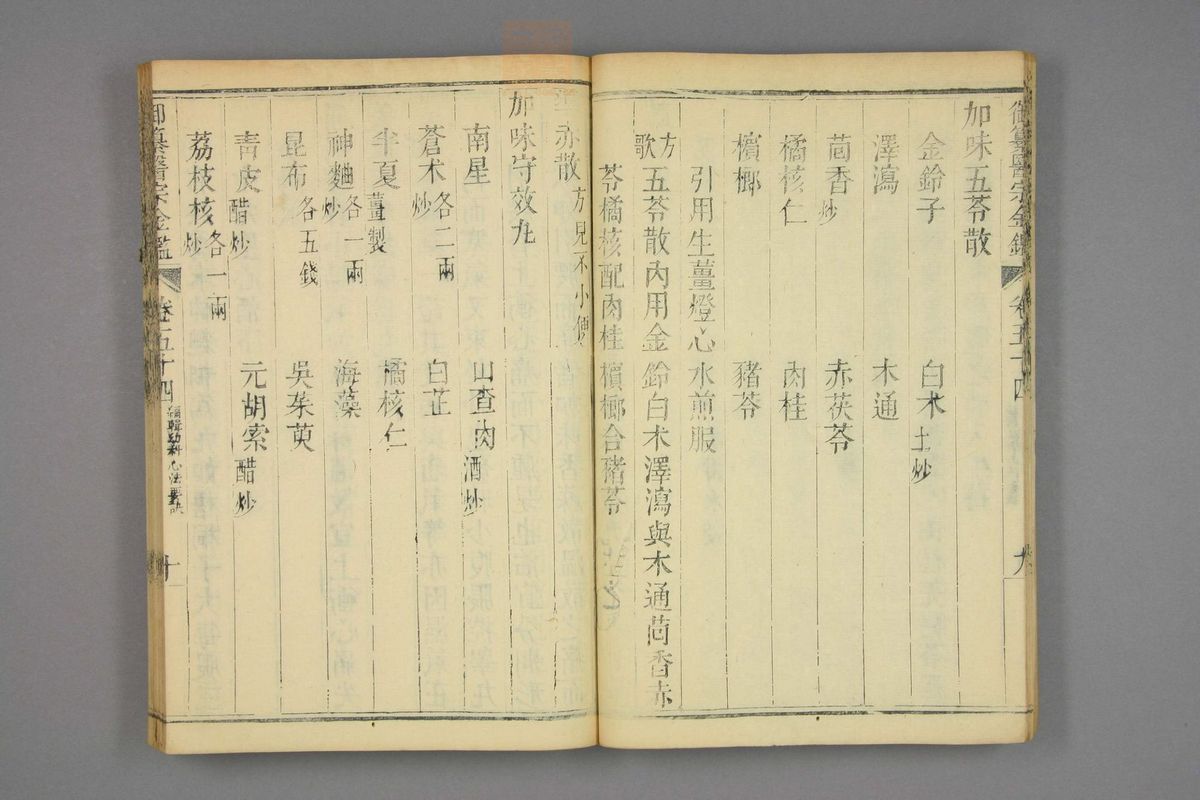 御纂醫宗金鑑 卷五十四 九
加味五苓散
金鈴子 白术土炒
澤瀉 木通
茴香炒 赤茯苓
橘核仁 肉桂
檳榔 豬苓
引用生薑燈心水煎服
方歌 五苓散內用金鈴白术澤瀉與木通茴香赤
苓橘核配肉桂檳榔合豬苓
導赤散方見不小便
加味守效丸
南星 山查肉酒炒
蒼术各二兩炒 白芷
半夏薑製 橘核仁
神麯各一兩炒 海藻
昆布各五錢 吳茱萸
青皮醋炒 元胡索醋炒
荔枝核各一兩炒
御纂醫宗金鑑 卷五十四 編輯幼科心法要訣 十